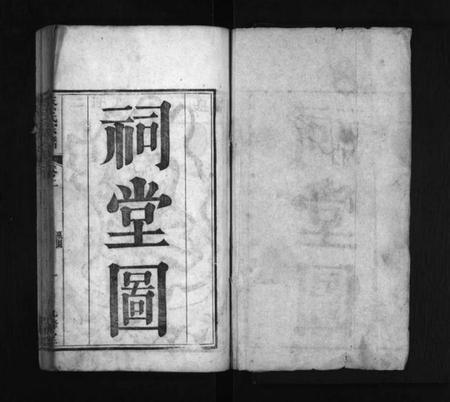 祠堂圖